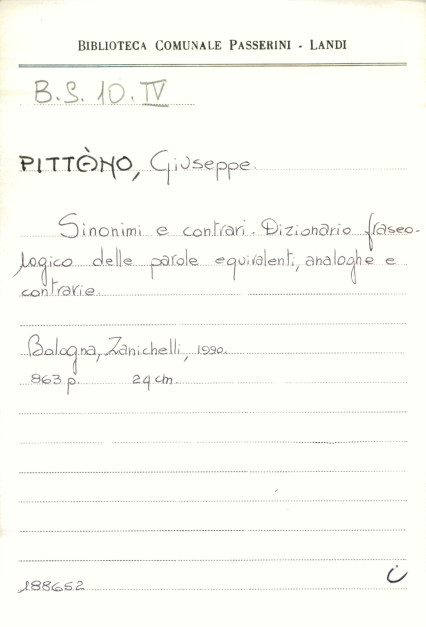 BIBLIOTECA COMUNALE PASSERINI - LANDI
B.S. 10. IV
PITTÀNO, Giuseppe.
Sinonimi e contrari. Dizionario fraseo-
logico delle parole equivalenti, analoghe e
contrarie.
Bologna, Zanichelli, 1990.
863 p. 24 cm.
188652